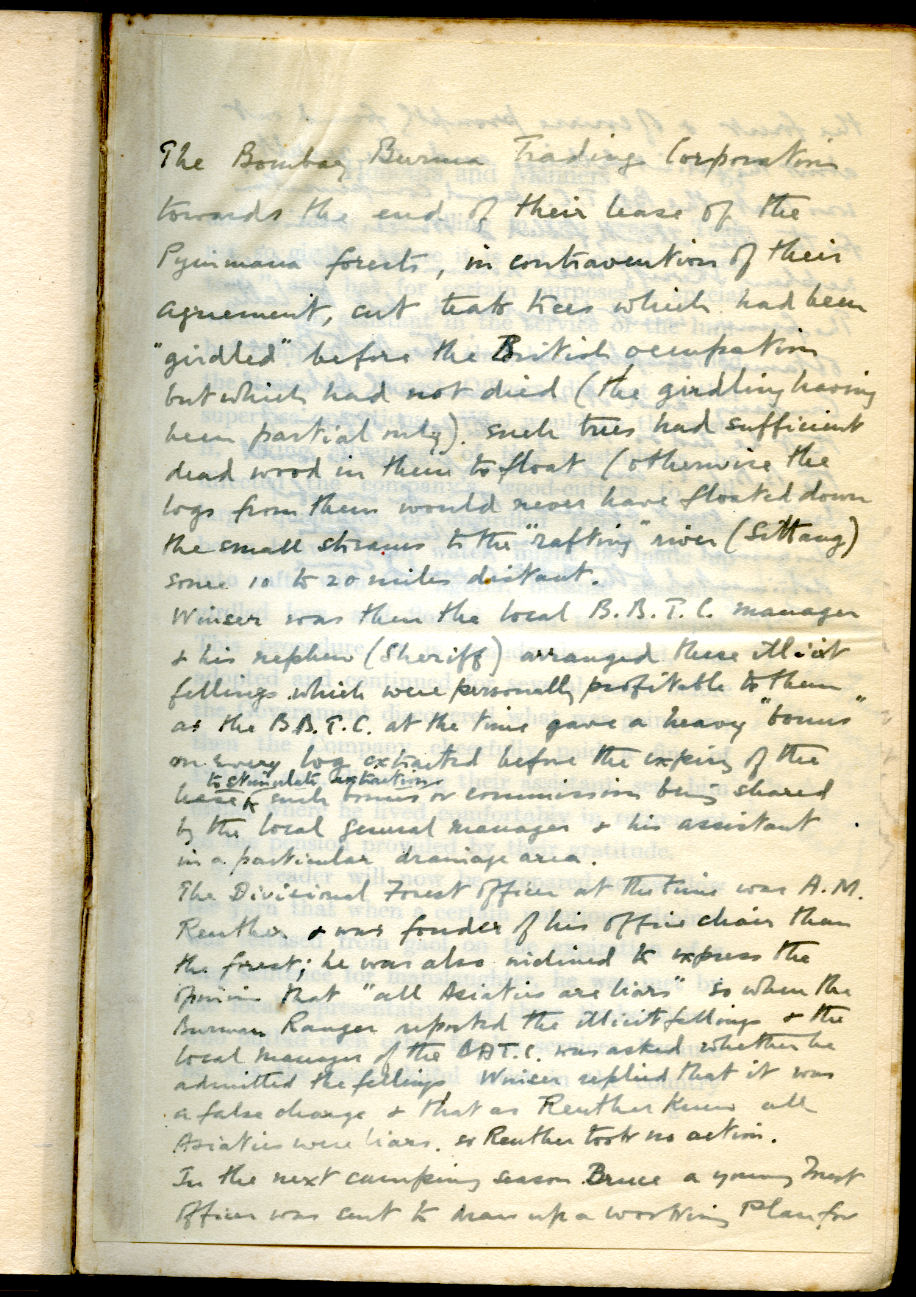 The Bombay Burma Trading Corporation
towards the end of their lease of the
Pyinmana forests, in contravention of their
agreement, cut teak trees which had been
"girdled" before the British occupation
but which had not died (the girdling having
been partial only). Such trees had sufficient
dead wood in them to float (otherwise the
logs from them would never have floated down
the small streams to the "rafting" river (Sittang)
some 10 to 20 miles distant.
Winser was then the local B.B.T.C. manager
& his nephew (Sheriff) arranged these illicit
fellings which were personally profitable to them
as the B.B.T.C. at the time gave a heavy "bonus"
on every log extracted before the expiry of the
to stimulate extraction
lease such bonus or commission being shared
by the local general manager & his assistant
in a particular drainage area.
The Divisional Forest Officer at this time was A.M.
Reuther & was fonder of his office chair than
the forest; he was also inclined to express the
opinion that "all Asiatics are liars" so when the
Burman Ranger reported the illicit fellings & the
local manager of the BBT.C. was asked whether he
admitted the fellings Winser replied that it was
a false charge & that as Reuther knew all
Asiatics were liars. so Reuther took no action.
In the next camping season Bruce a young Forest
Officer was sent to draw up a working Plan for